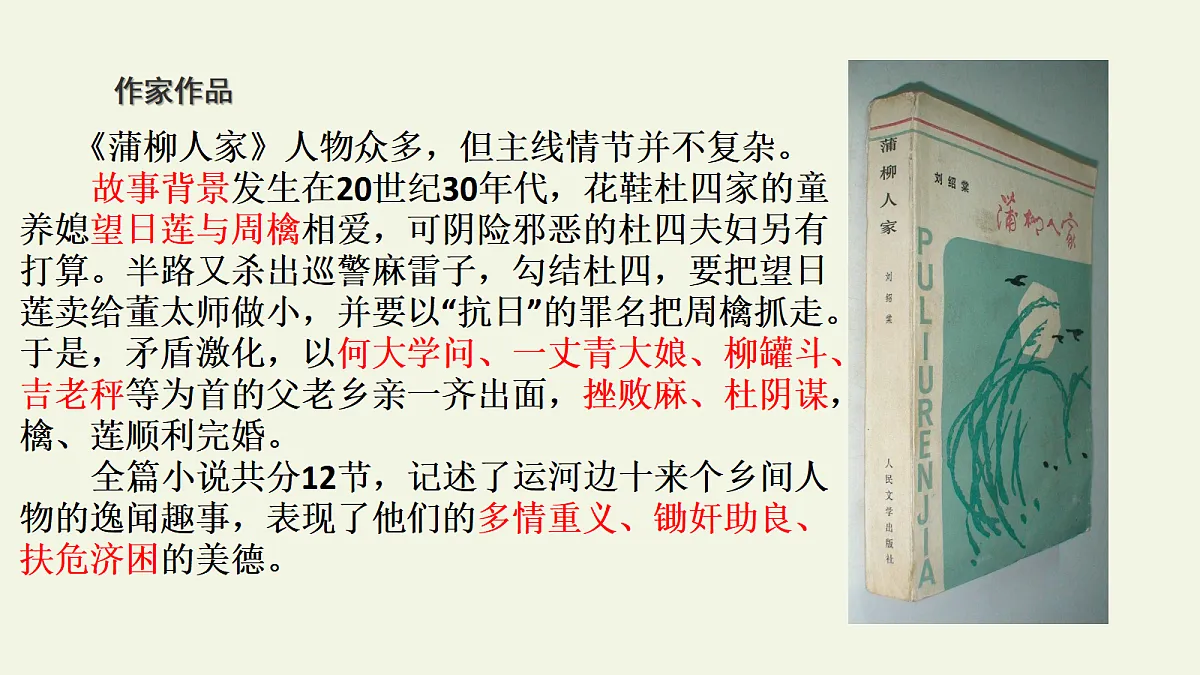 作家作品
《蒲柳人家》人物众多，但主线情节并不复杂。
故事背景发生在20世纪30年代，花鞋杜四家的童
养媳望日莲与周檎相爱，可阴险邪恶的杜四夫妇另有
打算。半路又杀出巡警麻雷子，勾结杜四，要把望日
莲卖给董太师做小，并要以“抗日”的罪名把周檎抓走。
于是，矛盾激化，以何大学问、一丈青大娘、柳罐斗、
吉老秤等为首的父老乡亲一齐出面，挫败麻、杜阴谋，
檎、莲顺利完婚。
全篇小说共分12节，记述了运河边十来个乡间人
物的逸闻趣事，表现了他们的多情重义、锄奸助良、
扶危济困的美德。
蒲柳人家
刘绍棠
人民文学出版社
刘绍棠
蒲柳人家
PULIURENJIA